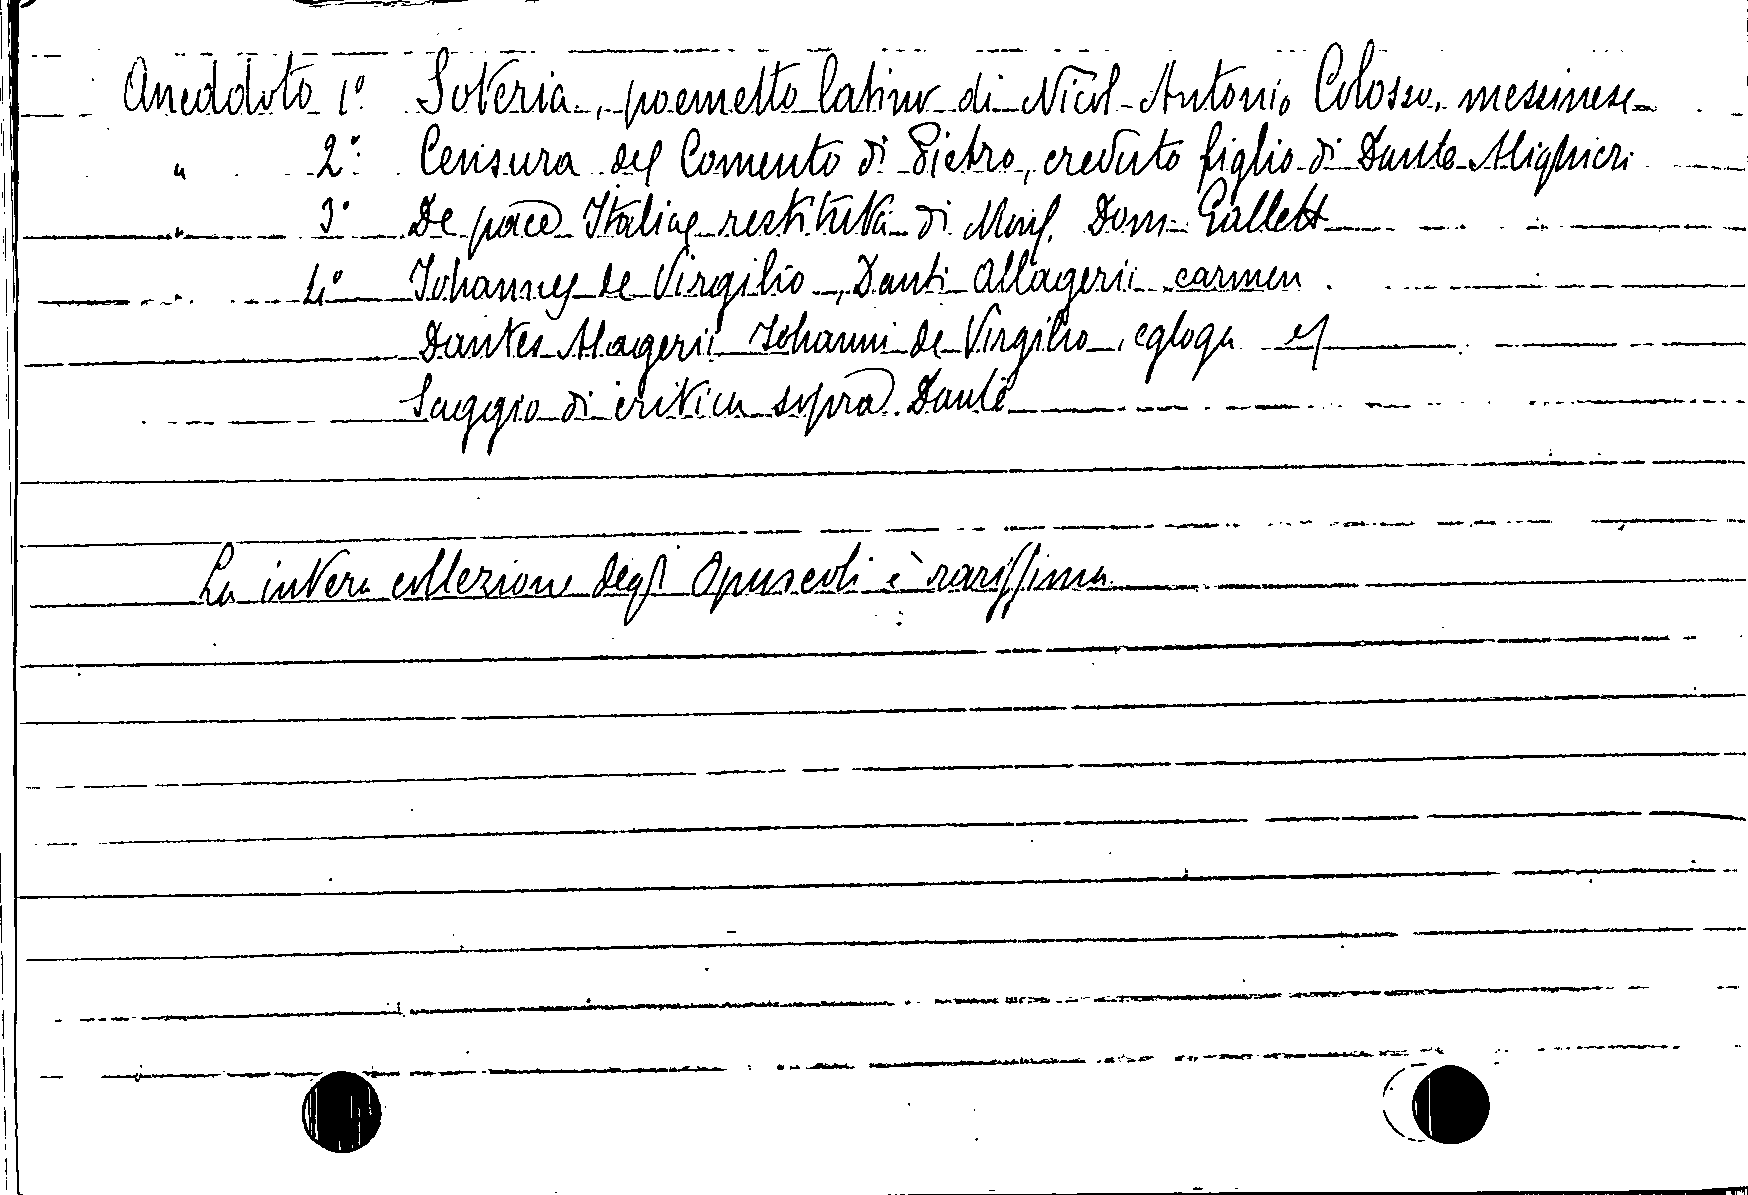 Aneddoto 1º Soteria, poemetto latino di Nicol-Antonio Colosso, messinese
" 2º Censura del Comento di Pietro, creduto figlio di Dante Alighieri
" 3º De pace Italiae restituta di Dom. Galletti
" 4º Johannes de Virgilio, Danti Allagerii carmen
Dantes Alagerii Johanni de Virgilio, egloga
Saggio di critica sopra Dante
La intera collezione degli Opuscoli è rarissima